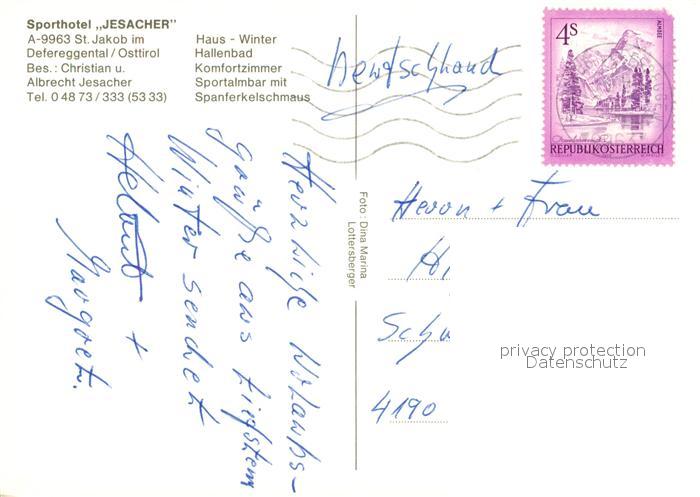 Sporthotel „JESACHER"
A-9963 St. Jakob im
Defereggental/Osttirol
Bes.: Christian u.
Albrecht Jesacher
Tel. 0 48 73 / 333 (53 33)
Haus - Winter
Hallenbad
Komfortzimmer
Sportalmbar mit
Spanferkelschmaus
Deutschland
4S
ALMSEE
REPUBLIK ÖSTERREICH
Herzliche Urlaubs-
grüße aus tiefstem
Winter sendet
Helmut +
Margret.
Foto: Dina Marina
Lottersberger
Herrn + Frau
Hi
Schu
4190
privacy protection
Datenschutz